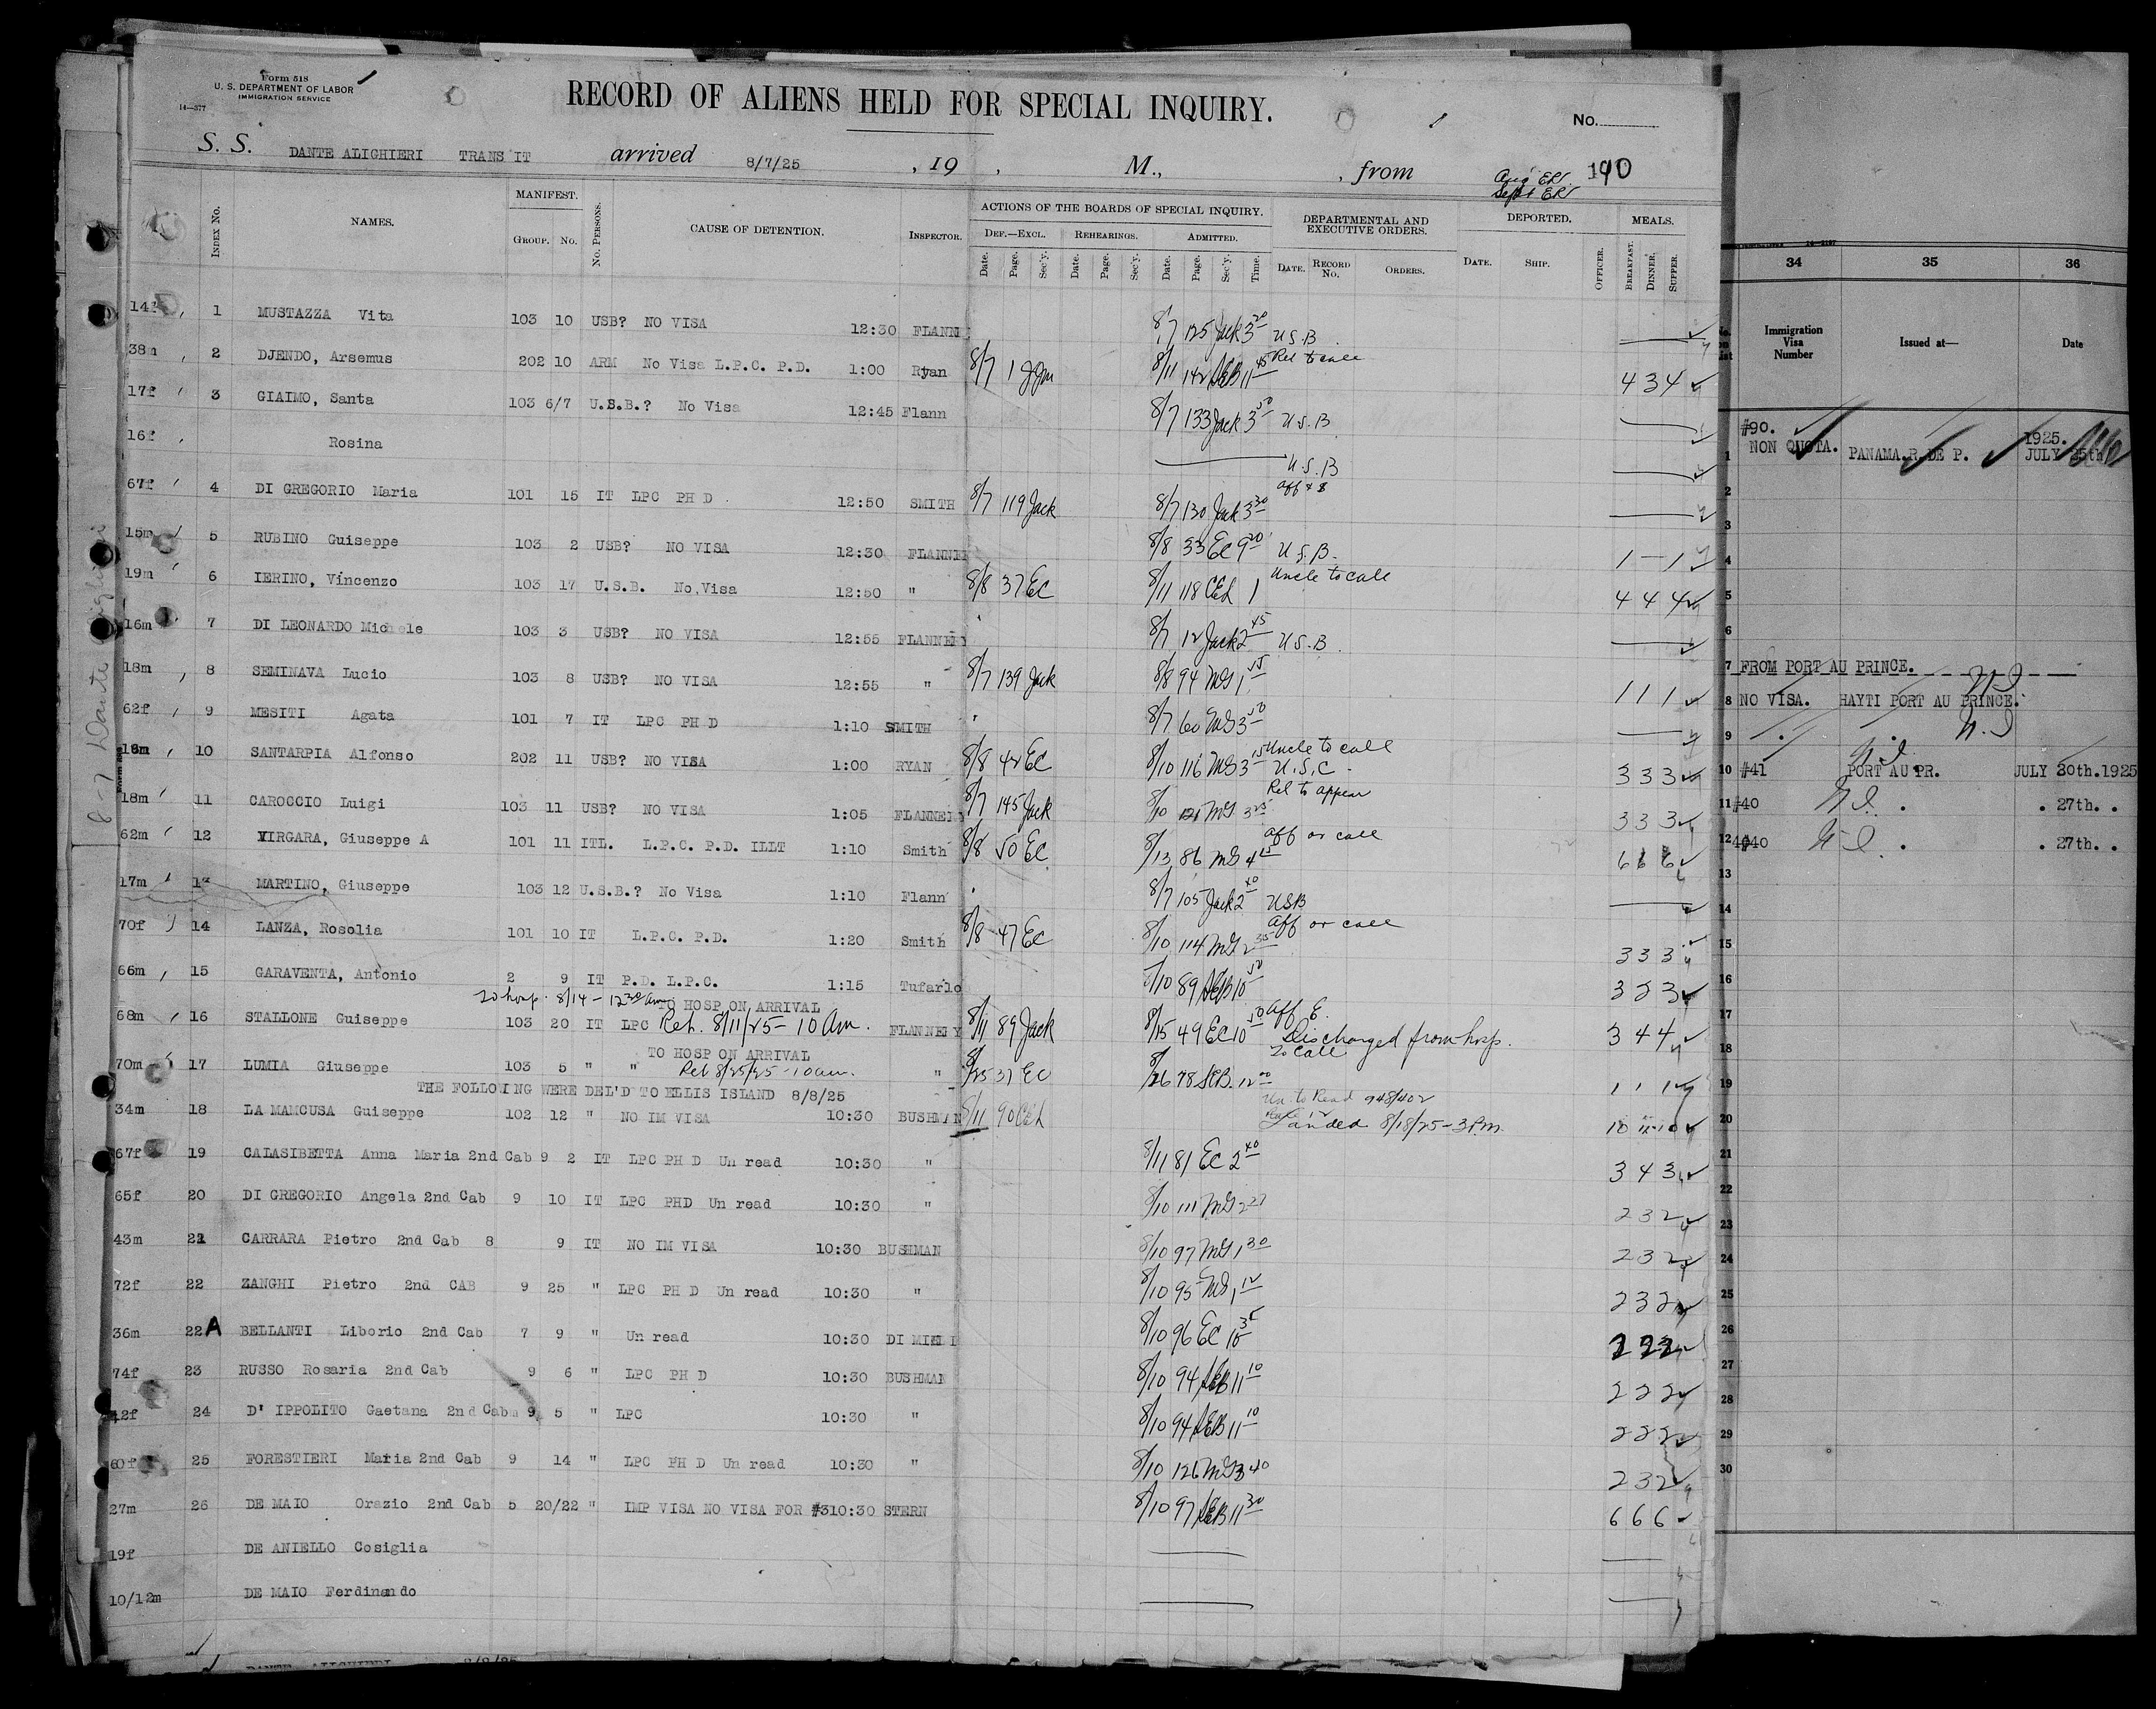 Form 518
U. S. DEPARTMENT OF LABOR
IMMIGRATION SERVICE
14—377
RECORD OF ALIENS HELD FOR SPECIAL INQUIRY.
No.
S. S. DANTE ALIGHIERI TRANSIT arrived 8/7/25 , 19 , M., , from Aug ER. 190
Sept ER
INDEX No. NAMES. MANIFEST. GROUP. No. No. PERSONS. CAUSE OF DETENTION. INSPECTOR.
ACTIONS OF THE BOARDS OF SPECIAL INQUIRY. DEF.—EXCL. REHEARINGS. ADMITTED.
Date. Page. Sec'y. Date. Page. Sec'y. Date. Page. Sec'y. Time.
DEPARTMENTAL AND EXECUTIVE ORDERS. DATE. RECORD No. ORDERS.
DEPORTED. DATE. SHIP. OFFICER. MEALS. BREAKFAST. DINNER. SUPPER.
14f 1 MUSTAZZA Vita 103 10 USB? NO VISA 12:30 FLANN 8/7 125 Jack 3 20 U.S.B
38m 2 DJENDO, Arsemus 202 10 ARM No Visa L.P.C. P.D. 1:00 Ryan 8/7 1 8/11 142 SEB 11 45 Rel to call 4 3 4
17f 3 GIAIMO, Santa 103 6/7 U.S.B.? No Visa 12:45 Flann 8/7 133 Jack 3 50 U.S.B
16f Rosina U.S.B
67f 4 DI GREGORIO Maria 101 15 IT LPC PH D 12:50 SMITH 8/7 119 Jack 8/7 130 Jack 3 30
15m 5 RUBINO Guiseppe 103 2 USB? NO VISA 12:30 FLANNE 8/8 33 EC 9 20 U.S.B. 1 – 1
19m 6 IERINO, Vincenzo 103 17 U.S.B. No Visa 12:50 " 8/8 37 EC 8/11 118 CEL 1 Uncle to call 4 4 4
16m 7 DI LEONARDO Michele 103 3 USB? NO VISA 12:55 FLANNERY 8/7 12 Jack 2 45 U.S.B.
18m 8 SEMINAVA Lucio 103 8 USB? NO VISA 12:55 " 8/7 139 Jack 8/8 94 MG 1 55 1 1 1
62f 9 MESITI Agata 101 7 IT LPC PH D 1:10 SMITH 8/7 60 MG 3 50
18m 10 SANTARPIA Alfonso 202 11 USB? NO VISA 1:00 RYAN 8/8 42 EC 8/10 116 MG 3 15 Uncle to call U.S.C. 3 3 3
18m 11 CAROCCIO Luigi 103 11 USB? NO VISA 1:05 FLANNERY 8/7 145 Jack 8/10 121 MG 3 25 Rel to appear 3 3 3
62m 12 VIRGARA, Giuseppe A 101 11 ITL. L.P.C. P.D. ILLT 1:10 Smith 8/8 50 EC 8/13 86 MG 4 15 aff or call 6 6 6
17m 13 MARTINO, Giuseppe 103 12 U.S.B.? No Visa 1:10 Flann 8/7 105 Jack 2 40 USB
70f 14 LANZA, Rosolia 101 10 IT L.P.C. P.D. 1:20 Smith 8/8 47 EC 8/10 114 MG 2 35 aff or call 3 3 3
66m 15 GARAVENTA, Antonio 2 9 IT P.D. L.P.C. 1:15 Tufarlo 8/10 89 SEB 10 50 3 2 3
To hosp. 8/14 – 12 30 am TO HOSP ON ARRIVAL
68m 16 STALLONE Guiseppe 103 20 IT LPC Ret. 8/11/25 – 10 Am. FLANNERY 8/11 89 Jack 8/15 49 EC 10 50 aff E. Discharged from hosp. 3 4 4
TO HOSP ON ARRIVAL
70m 17 LUMIA Giuseppe 103 5 " " Ret 8/25/25 – 10 am. " 8/25 37 EC 8/26 78 SEB. 12 00 To call 1 1 1
THE FOLLOING WERE DEL'D TO ELLIS ISLAND 8/8/25
34m 18 LA MAMCUSA Guiseppe 102 12 " NO IM VISA 10:30 BUSHMAN 8/11 90 CEL Un. to Read 948/402 Landed 8/18/25 – 3 P.M. 10 11 10
67f 19 CALASIBETTA Anna Maria 2nd Cab 9 2 IT LPC PH D Un read 10:30 " 8/11 81 EC 2 40 3 4 3
65f 20 DI GREGORIO Angela 2nd Cab 9 10 IT LPC PHD Un read 10:30 " 8/10 111 MG 2 27 2 3 2
43m 21 CARRARA Pietro 2nd Cab 8 9 IT NO IM VISA 10:30 BUSHMAN 8/10 97 MG 1 30 2 3 2
72f 22 ZANGHI Pietro 2nd CAB 9 25 " LPC PH D Un read 10:30 " 8/10 95 MG 1 12 2 3 2
36m 22A BELLANTI Liborio 2nd Cab 7 9 " Un read 10:30 DI MIELI 8/10 96 EC 10 35 2 2 2
74f 23 RUSSO Rosaria 2nd Cab 9 6 " LPC PH D 10:30 BUSHMAN 8/10 94 SEB 11 10 2 2 2
42f 24 D' IPPOLITO Gaetana 2nd Cab 9 5 " LPC 10:30 " 8/10 94 SEB 11 10 2 2 2
60f 25 FORESTIERI Maria 2nd Cab 9 14 " LPC PH D Un read 10:30 " 8/10 126 MG 3 40 2 3 2
27m 26 DE MAIO Orazio 2nd Cab 5 20/22 " IMP VISA NO VISA FOR #3 10:30 STERN 8/10 97 SEB 11 30 6 6 6
19f DE ANIELLO Cosiglia
10/12m DE MAIO Ferdinando
DANTE ALIGHIERI 8/8/25
8-7 Dante Alighieri
34 35 36
Immigration Visa Number Issued at— Date
#90. NON QUOTA. PANAMA.R.DE P. 1925. JULY 25th
1
2
3
4
5
6
7 FROM PORT AU PRINCE.
8 NO VISA. HAYTI PORT AU PRINCE.
9
10 #41 PORT AU PR. JULY 30th.1925
11 #40 . . 27th. .
12 #40 . . 27th. .
13
14
15
16
17
18
19
20
21
22
23
24
25
26
27
28
29
30